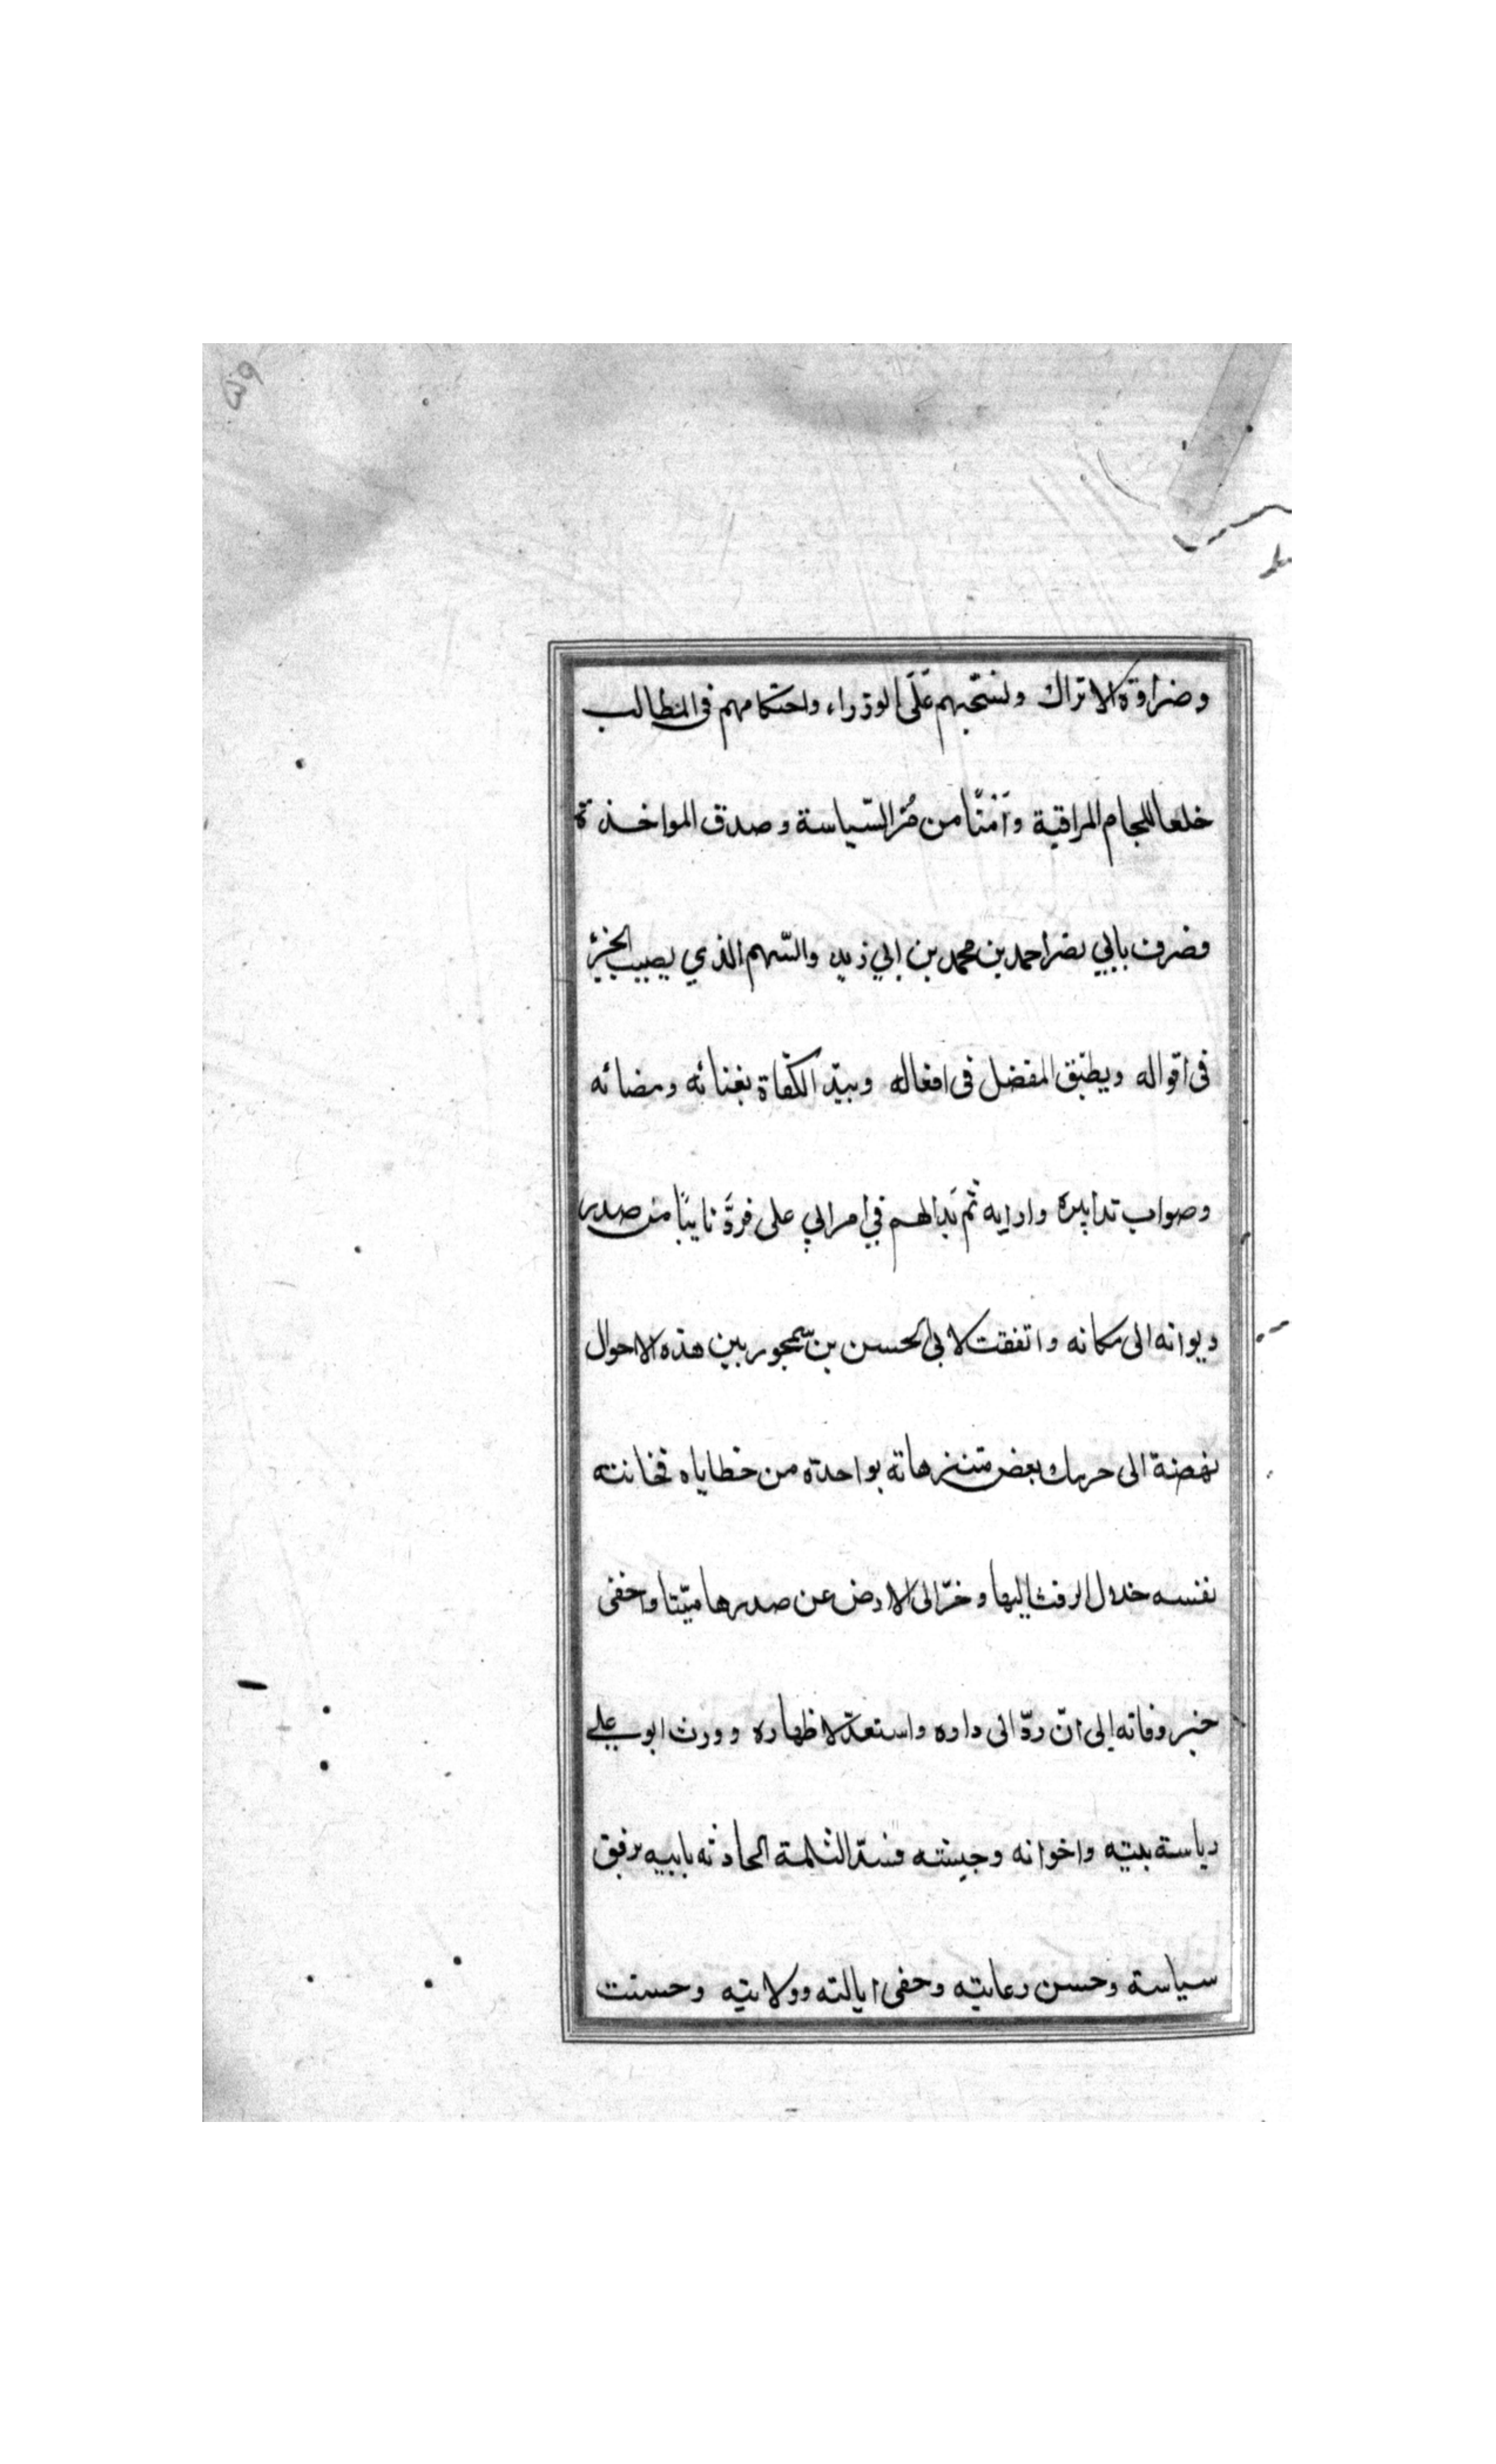 وضراوة الاتراك وتسحبهم على الوزراء واحتكامهم فى المطالب
خلعا للجام المراقبة وَأمنًا من مُرّ السّياسة وصدق المواخذة
فصرف بابي نصر احمد بن محمد بن ابي زيد والسّهم الذي يصيب الحزّ
فى اقواله ويطبّق المفصل فى افعاله ويبذّ الكفاة بغنائه ومضائه
وصواب تدابيره وارايه ثم بَدا لهم في امر ابي على فردّ نايبًا من صدر
ديوانه الى مكانه واتفقت لابى الحسن بن سيمجور بين هذه الاحوال
نهضة الى حرمك بعض متنزهاته بواحدة من خطاياه فخانته
نفسه خلال الرفث اليها وخرّ الى الارض عن صدرها ميّتا واخفى
خبر وفاته إلى انّ ردّ الى داره واستعدّ لاظهاره وورث ابو علي
رياسة بيته واخوانه وجيشه فسدّ الثلمة الحادثه بابيه برفق
سياسة وحسن رعايته وحفى ايالته وولايته وحسنت